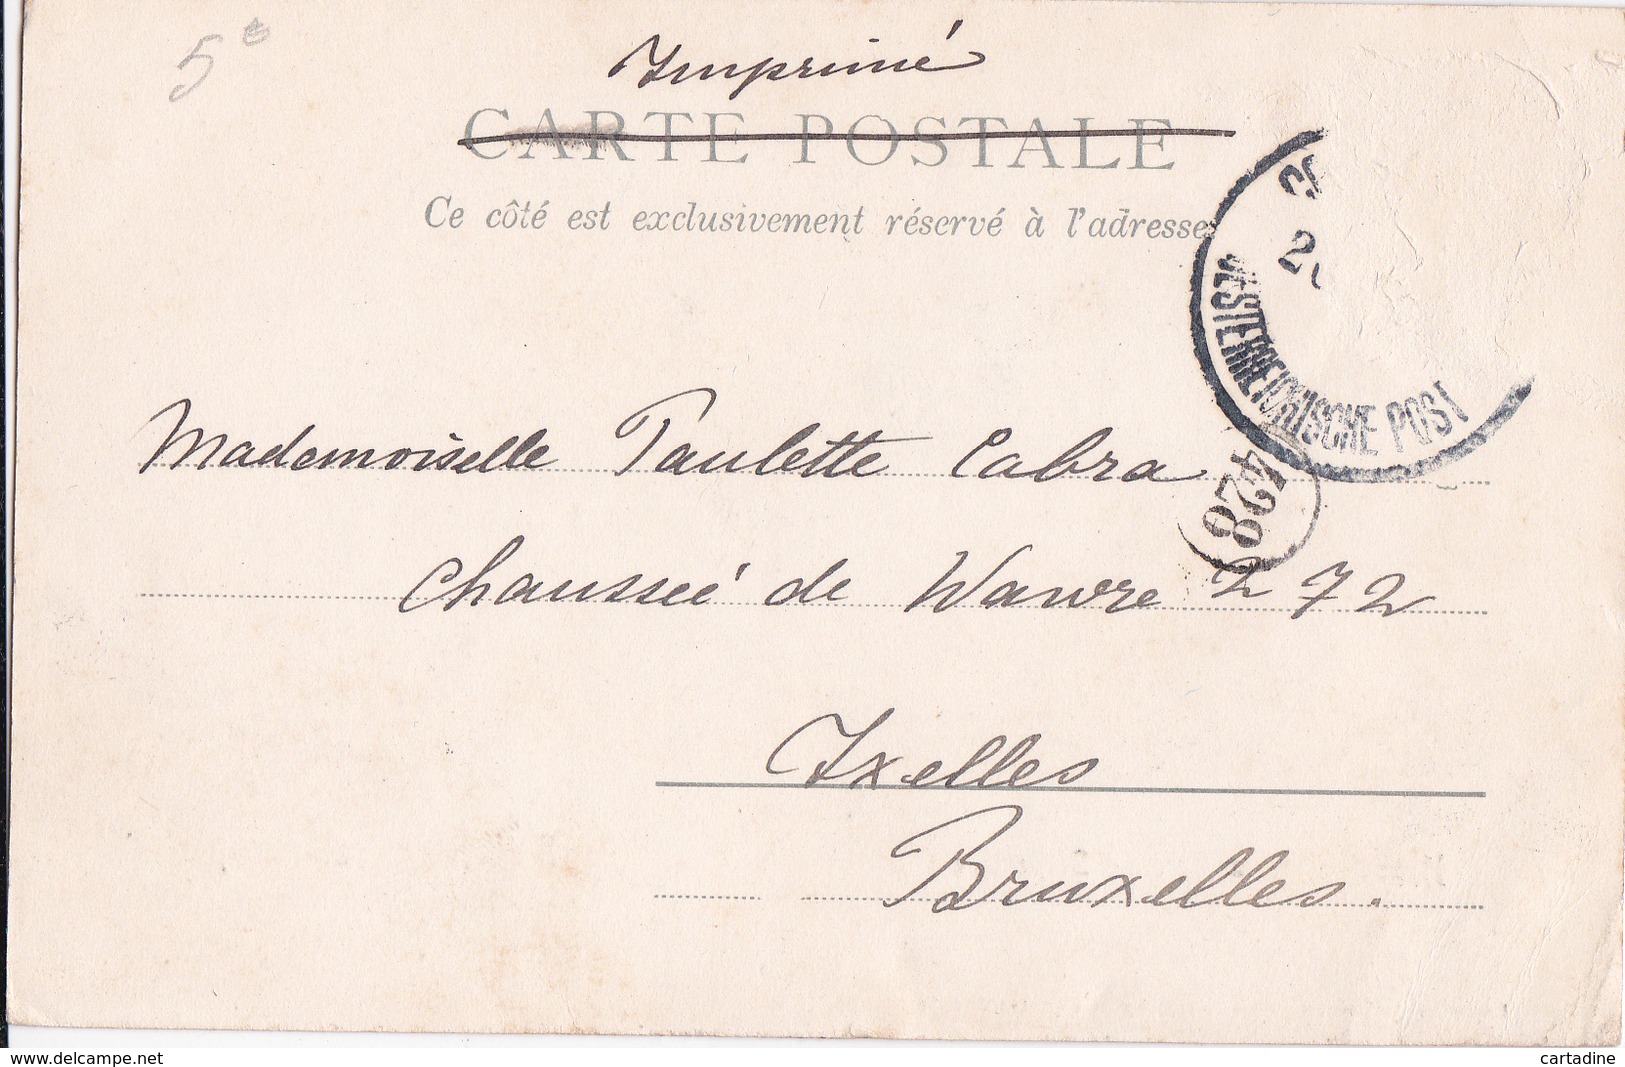 5e
Imprimé
CARTE POSTALE
Ce côté est exclusivement réservé à l'adresse
OESTERREICHISCHE POST
Mademoiselle Paulette Cabra
428
Chausseé de Wavre 272
Ixelles
Bruxelles.
www.delcampe.net
cartadine